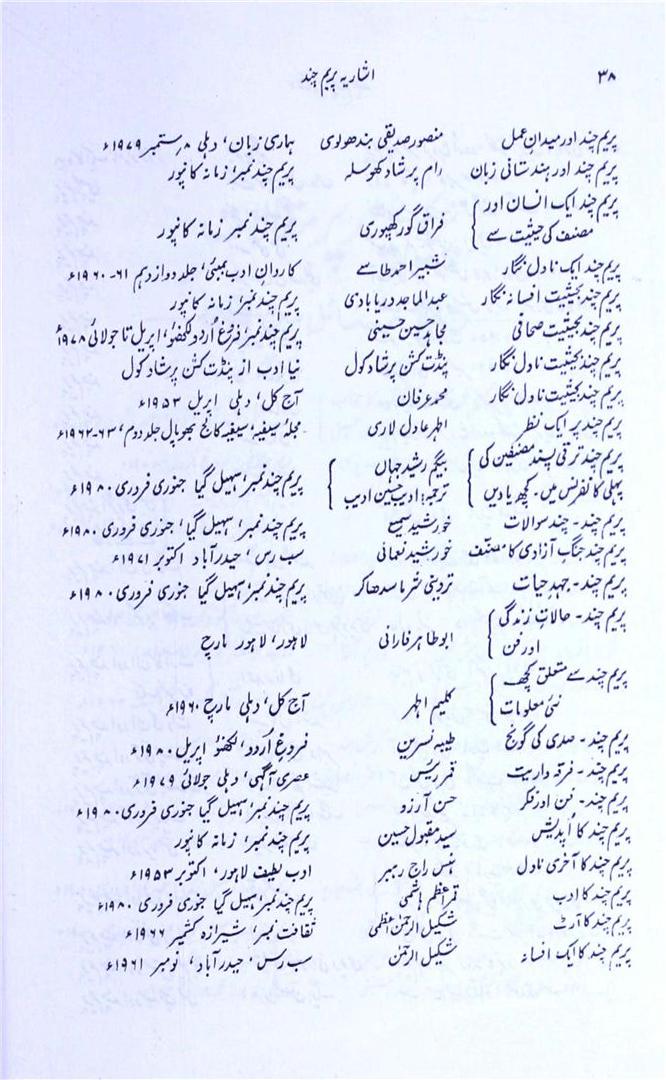 ۳۸ اشاریہ پریم چند
پریم چند اور میدانِ عمل منصور صدیقی بندھولوی ہماری زبان، دہلی ۸ ستمبر ۱۹۷۹ء
پریم چند اور ہندستانی زبان رام پرشاد کھوسلہ پریم چند نمبر؛ زمانہ کانپور
پریم چند ایک انسان اور
مصنف کی حیثیت سے فراق گورکھپوری پریم چند نمبر زمانہ کانپور
پریم چند ایک ناول نگار شبیر احمد کاروانِ ادب بمبئی؛ جلد دوازدہم ۶۱-۱۹۶۰ء
پریم چند بحیثیت افسانہ نگار عبدالماجد دریابادی پریم چند نمبر؛ زمانہ کانپور
پریم چند بحیثیت صحافی مجاہد حسین حسینی پریم چند نمبر؛ فروغِ اُردو لکھنؤ، اپریل تا جولائی
پریم چند بحیثیت ناول نگار پنڈت کشن پرشاد کول نیا ادب از پنڈت کشن پرشاد کول
پریم چند بحیثیت ناول نگار محمد عرفان آج کل، دہلی اپریل ۱۹۵۳ء
پریم چند پر ایک نظر اطہر عادل لاری مجلّہ سیفیہ، سیفیہ کالج بھوپال جلد دوم، ۶۳-۱۹۶۲ء
پریم چند ترقی پسند مصنفین کی بیگم رشید جہاں
پہلی کانفرنس میں۔ کچھ یادیں ترجمہ: ادیب حسین ادیب پریم چند نمبر؛ سہیل گیا جنوری فروری ۱۹۸۰ء
پریم چند۔ چند سوالات خورشید سمیع پریم چند نمبر؛ سہیل گیا، جنوری فروری ۱۹۸۰ء
پریم چند جنگ آزادی کا مصنف خورشید نعمانی سب رس، حیدرآباد اکتوبر ۱۹۷۱ء
پریم چند۔ جہدِ حیات تروینی شرما سدھاکر پریم چند نمبر؛ سہیل گیا جنوری فروری ۱۹۸۰ء
پریم چند۔ حالاتِ زندگی
اور فن ابوطاہر فارانی لاہور، لاہور مارچ
پریم چند سے متعلق کچھ
نئی معلومات کلیم اطہر آج کل، دہلی مارچ ۱۹۶۰ء
پریم چند۔ صدی کی گونج طیبہ نسرین فروغِ اُردو، لکھنؤ اپریل ۱۹۸۰ء
پریم چند۔ فرقہ واریت قمر رئیس عصری آگہی، دہلی جولائی ۱۹۷۹ء
پریم چند۔ فن اور فکر حسن آرزو پریم چند نمبر؛ سہیل گیا جنوری فروری ۱۹۸۰ء
پریم چند کا اُپدیش سید مقبول حسین پریم چند نمبر؛ زمانہ کانپور
پریم چند کا آخری ناول ہنس راج رہبر ادب لطیف لاہور، اکتوبر ۱۹۵۳ء
پریم چند کا ادب قمر اعظم ہاشمی پریم چند نمبر؛ سہیل گیا جنوری فروری ۱۹۸۰ء
پریم چند کا آرٹ شکیل الرحمٰن ثقافت نمبر؛ شیرازہ کشمیر ۱۹۶۶ء
پریم چند کا ایک افسانہ شکیل الرحمٰن سب رس، حیدرآباد، نومبر ۱۹۶۱ء